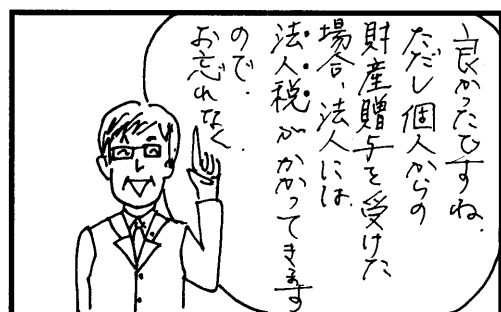 良かったですね.
ただし個人からの
財産贈与を受けた
場合、法人には.
法人税がかかってきます
ので.
お忘れなく.